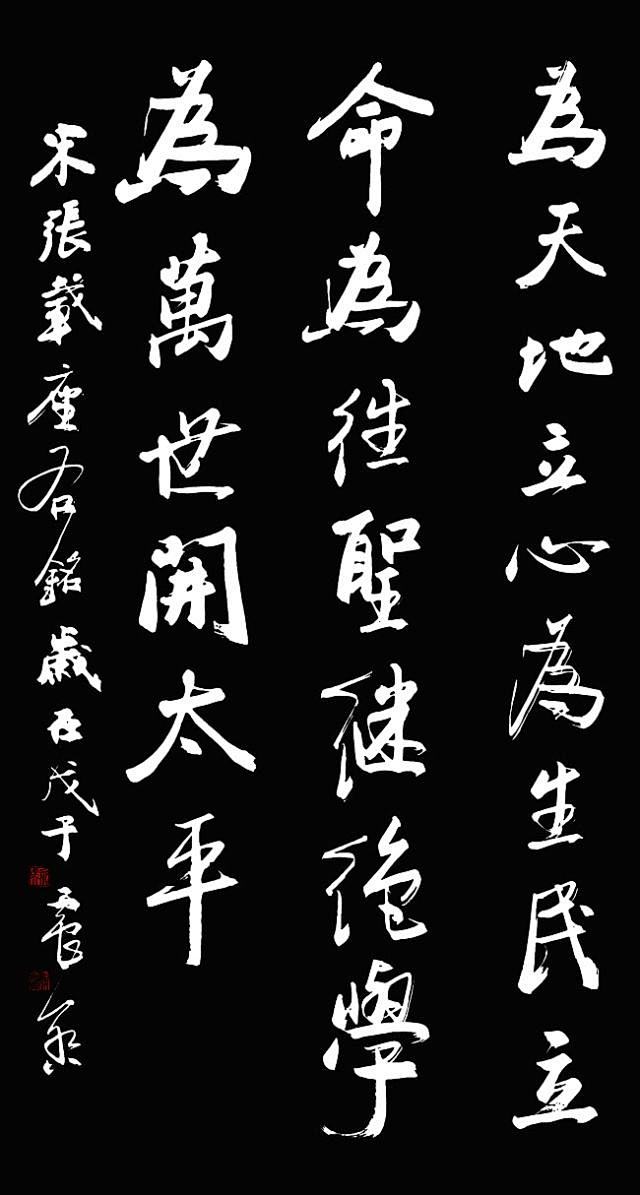 為天地立心為生民立
命為往聖继绝學
為萬世開太平
宋張載座右銘歲在戊子震